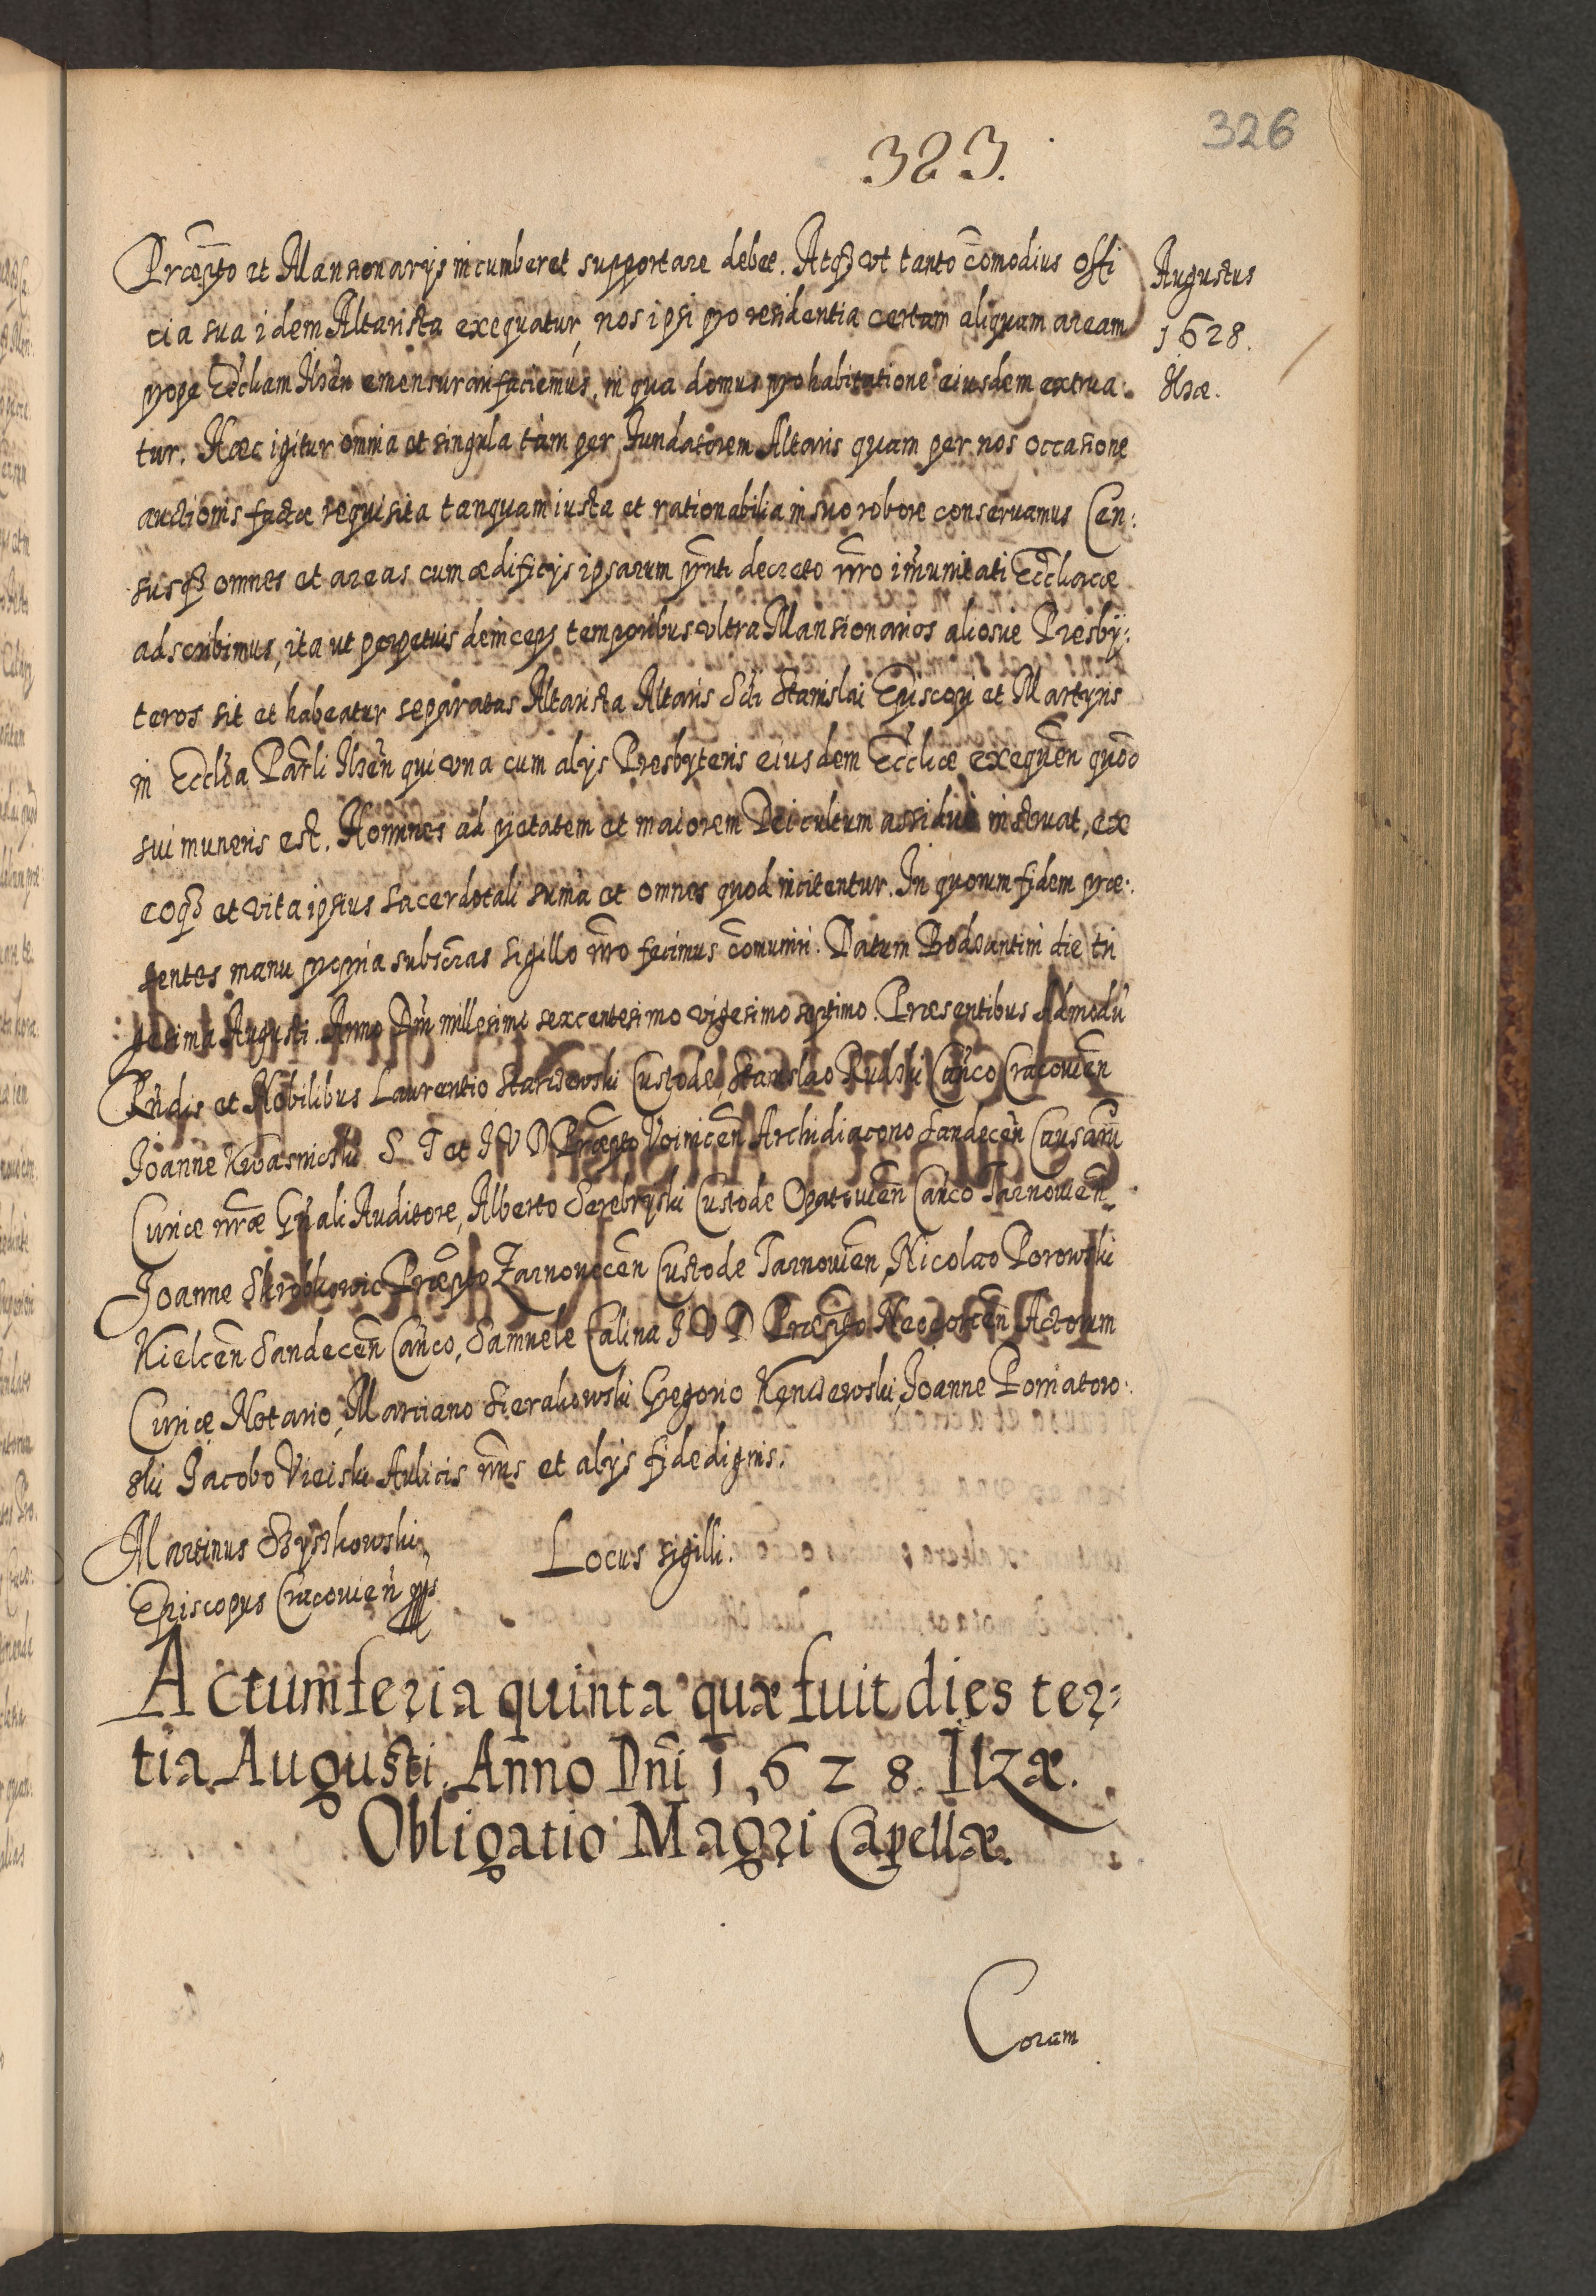 326
.323.
Augustus
1628.
Ilzæ.
Præpto et Mansionarijs incumberet supportare debet. Atq3 vt tanto com̃odius offi
cia sua idem Altarista exequatur, nos ipsi pro residentia certam aliquam aream
prope Ecc̃liam Ilzen̄ emensurari faciemus, in qua domus pro habitatione eiusdem extrua:
tur. Hæc igitur omnia et singula tam per fundatorem Altaris quam per nos occasione
auctionis factæ requisita tanquam iusta et rationabilia in suo robore conseruamus Cen:
susq3 omnes et areas cum ædificijs ipsarum pñti decreto nr̃o im̃unitati Ecc̃licæ
adscribimus, ita vt perpetuis deinceps temporibus vltra Mansionarios aliosue Presby:
teros sit et habeatur separatus Altarista Altaris Scti Stanislai Episcopi et Martyris
in Ecc̃lia Parl̃i Ilzen̄ qui vna cum alijs Presbyteris eiusdem Ecc̃liæ exequen̄ quod
sui muneris est. Homines ad pietatem et maiorem Dei cultum assidue instruat, ex
eoq3 et vita ipsius sacerdotali suma et omnes quod incitentur. In quorum fidem præ:
sentes manu propria subscr̃as sigillo nr̃o fecimus com̃uniri. Datum Bodzantini die tri
gesima Augusti. Anno Dñi millesimo sexcentesimo vigesimo septimo. Præsentibus Admodũ
Rñdis et Nobilibus Laurentio Starczewski Custode, Stanislao Rudski Cañco Cracouien̄
Joanne Kwasnicski S. T et J V D Præpto Voinicen̄ Archidiacono Sandecen̄ Causarũ
Curiæ nr̃æ Gñali Auditore, Alberto Serebryski Custode Opatouien̄ Cañco Tarnouien̄.
Joanne Skrobkowic Præpto Zarnouecen̄ Custode Tarnouien̄, Nicolao Porowski
Kielcen̄ Sandecen̄ Cañco, Samuele Calina J V D Præpto Neogorcen̄ Actorum
Curiæ Notario, Marciano Sierakowski Gregorio Kenczewski, Joanne Poniatow:
ski Jacobo Vieiski Aulicis nr̃is et alijs fide dignis.
Martinus Szyszkowski
Episcopus Cracouien̄ mpp
Locus sigilli.
Actum feria quinta quæ fuit dies ter:
tia Augusti. Anno Dñi 1628. Ilzæ.
Obligatio Magr̃i Capellæ.
Coram